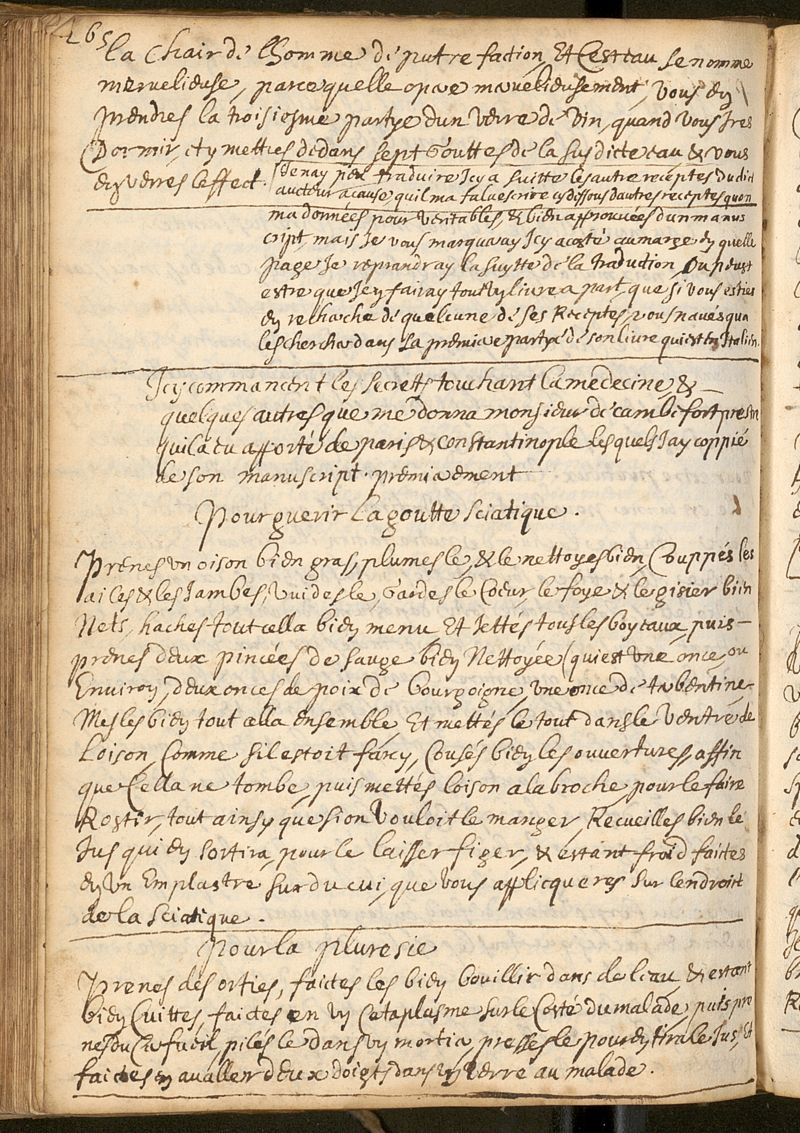 165
la Chair de lhomme de putrefaction, Et Cest eau se nomme
mervelieuse, parce quelle opere mervelieusement, vous en
prendres la troisiesme partye dun verre de vin, quand vous ires
Dormir, et y mettres dedans sept Gouttes de la susdicte eau & vous
en verres leffect. Je nay peu traduire Icy a suitte les autre receptes Dudict
aucteur a cause quil ma falu escrire cy dessous dautres receptes quon
ma données pour veritables, & bien approuvées dun manus
cript, mais Je vous marqueray Icy a costé au marge en quelle
page Je reprandray la suytte de la traduction, Ou peust
estre que Jen fairay tout un livre a part, que si vous esties
en recherche de quelcune de ses Receptes, vous navés qua
les chercher dans La premiere partye de son livre qui est en Italien.
Icy commancent les secrets touchant la medecine, &
quelques autres que me donna monsieur de cambefort
quil a eu apporté de paris & Constantinople lesquels Jay coppié
de son manuscript. premierement
Pour guerir La goutte Sciatique.
Prenes un oison bien gras, plumes le, & le nettoyes bien, Couppés les
ailes & les Jambes, vuides le, Gardes le Coeur le foye & le gisier bien
Nets, haches tout cella bien menu Et Jettés tous les boyeaux, puis
prenes deux pincées de sauge bien Nettoyée (qui est une once, ou
Environ, deux onces de poix de bourgoigne, une once de terbentine,
Mesles bien tout cella ensemble, Et mettés le tout dans le ventre de
Loison, Comme sil estoit farcy, Cousés bien les ouvertures, affin
que Cella ne tombe, puis mettés loison a la broche pour le faire
Rostir, tout ainsy que si on vouloit le manger, Recueilles bien le
Jus qui en sortira, pour le laisser figer, & estant froid faites
en un Emplastre sur du cui, que vous applicqueres sur lendroit
de la Sciatique.
Pour la pluresie
Prenes des orties, faictes les bien bouillir dans de leau, & estant
bien Cuittes faictes en un Cataplasme sur le Costé du malade, puis pre
nes du Cerfueil, pilés le dans un mortier, presses le pour en tirer le Jus, Et
faictes en avaller deux doigts dans un verre au malade.